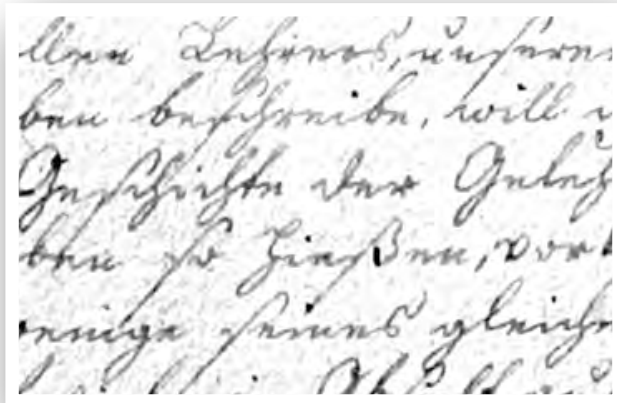 llen Lehrers, unsere
ben beschreibe, will
Geschichte der Geleh
ben so hießen, vor
wenige seines gleiche